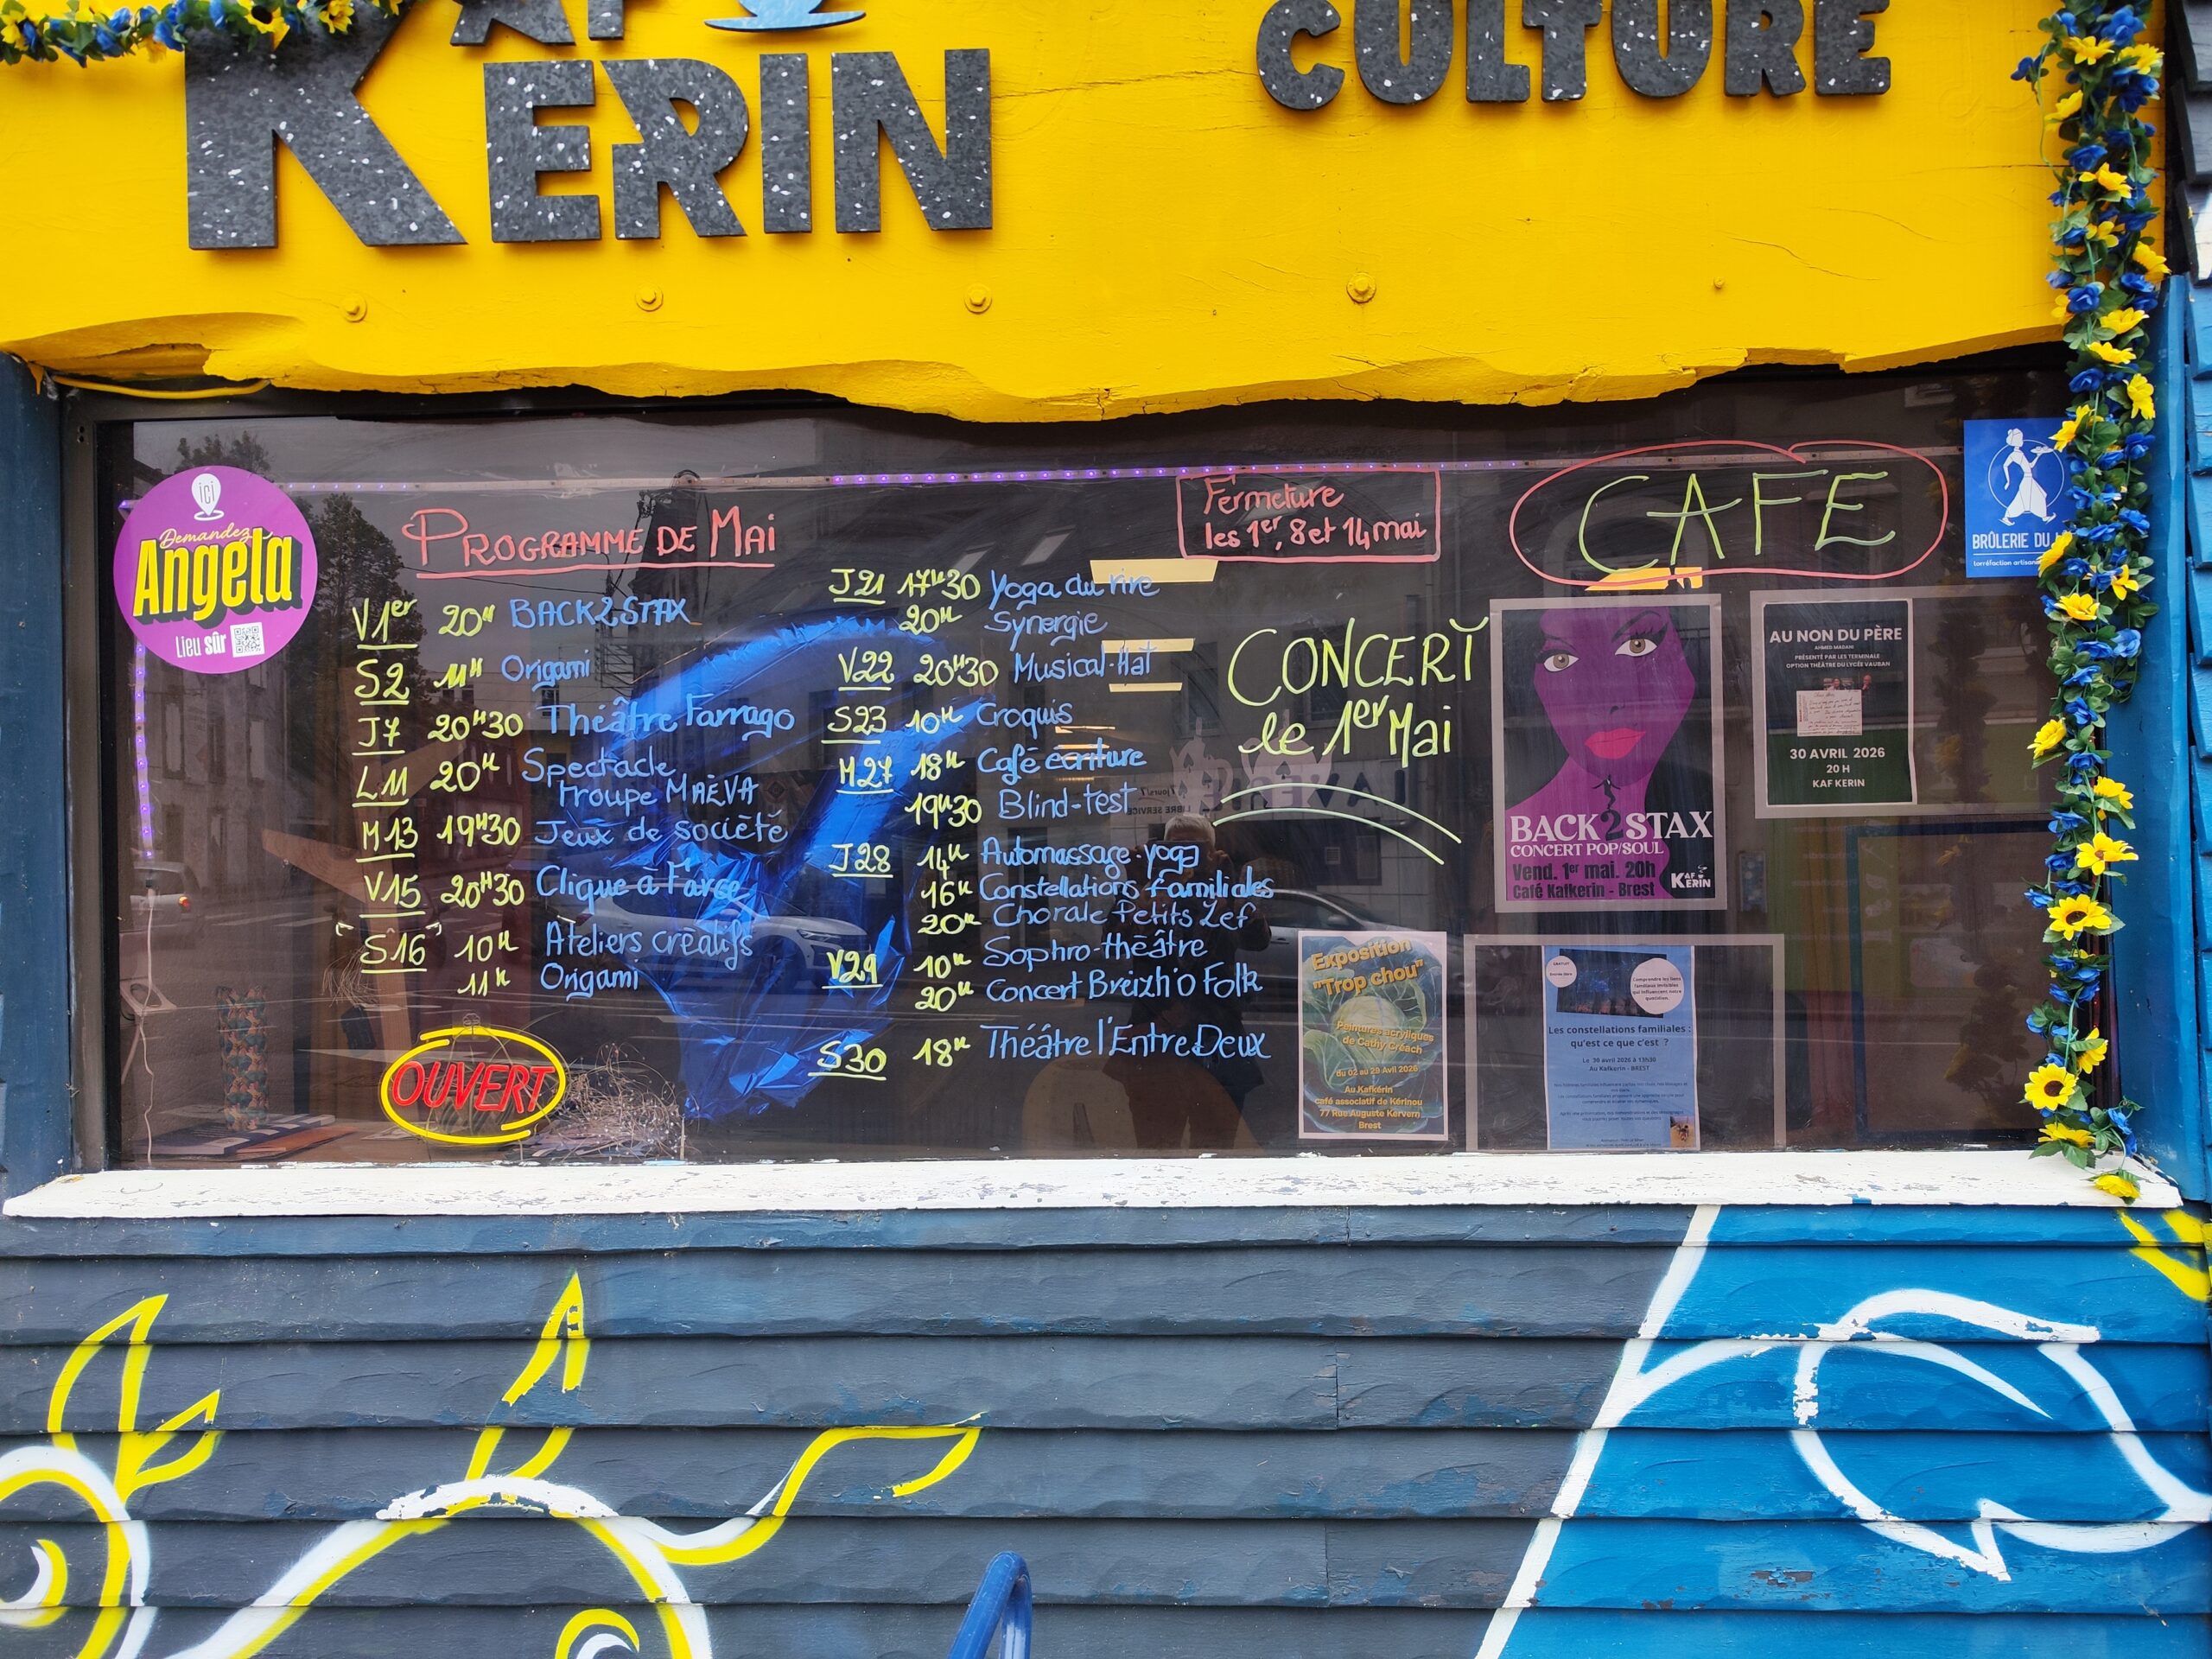 KAF
KERIN
CULTURE
ici
Demandez
Angela
Lieu sûr
PROGRAMME DE MAI
V1er 20H BACK2STAX
S2 11H Origami
J7 20H30 Théâtre Farrago
L11 20H Spectacle
Troupe MAËVA
M13 19H30 Jeux de société
V15 20H30 Clique à Farce
S16 10H Ateliers créatifs
11H Origami
OUVERT
J21 17H30 Yoga du rire
20H Synergie
V22 20H30 Musical-Hat
S23 10H Croquis
M27 18H Café écriture
19H30 Blind-test
J28 14H Automassage-yoga
16H Constellations familiales
20H Chorale Petits Zef
V29 10H Sophro-théâtre
20H Concert Breizh'O Folk
S30 18H Théâtre l'Entre Deux
Fermeture
les 1er, 8 et 14 mai
CAFE
CONCERT
le 1er Mai
BRÛLERIE DU
torréfaction artisanale
BACK2STAX
CONCERT POP/SOUL
Vend. 1er mai. 20h
Café Kafkerin - Brest
KAF
KERIN
AU NON DU PÈRE
AHMED MADANI
PRÉSENTÉ PAR LES TERMINALE
OPTION THÉÂTRE DU LYCÉE VAUBAN
30 AVRIL 2026
20 H
KAF KERIN
Exposition
"Trop chou"
Peintures acryliques
de Cathy Créach
du 02 au 29 Avil 2026
Au Kafkérin
café associatif de Kérinou
77 Rue Auguste Kervern
Brest
Comprendre les liens
familiaux invisibles
qui influencent notre
quotidien.
Les constellations familiales :
qu'est ce que c'est ?
Le 30 avril 2026 à 13h30
Au Kafkerin - BREST